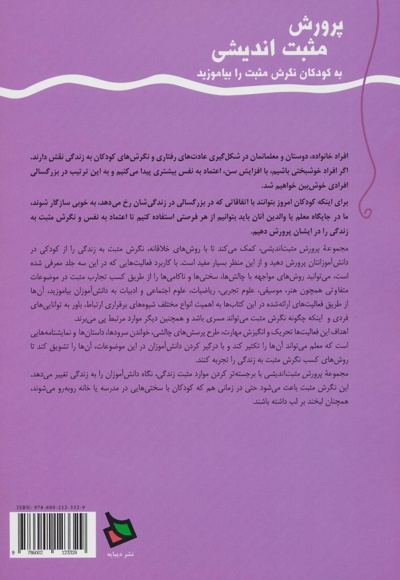 پرورش
مثبت اندیشی
به کودکان نگرش مثبت را بیاموزید
افراد خانواده، دوستان و معلمانمان در شکل‌گیری عادت‌های رفتاری و نگرش‌های کودکان به زندگی نقش دارند.
اگر افراد خوشبختی باشیم، با افزایش سن، اعتماد به نفس بیشتری پیدا می‌کنیم و به این ترتیب در بزرگسالی
افرادی خوش‌بین خواهیم شد.
برای اینکه کودکان امروز بتوانند با اتفاقاتی که در بزرگسالی در زندگی‌شان رخ می‌دهد، به خوبی سازگار شوند،
ما در جایگاه معلم یا والدین آنان باید بتوانیم از هر فرصتی استفاده کنیم تا اعتماد به نفس و نگرش مثبت به
زندگی را در ایشان پرورش دهیم.
مجموعهٔ پرورش مثبت‌اندیشی، کمک می‌کند تا با روش‌های خلاقانه، نگرش مثبت به زندگی را از کودکی در
دانش‌آموزانتان پرورش دهید و از این منظر بسیار مفید است. با کاربرد فعالیت‌هایی که در این سه جلد معرفی شده
است، می‌توانید روش‌های مواجهه با چالش‌ها، سختی‌ها و ناکامی‌ها را از طریق کسب تجارب مثبت در موضوعات
متفاوتی همچون هنر، موسیقی، علوم تجربی، ریاضیات، علوم اجتماعی و ادبیات به دانش‌آموزان بیاموزید، آن‌ها
از طریق فعالیت‌های ارائه‌شده در این کتاب‌ها به اهمیت انواع مختلف شیوه‌های برقراری ارتباط، باور به توانایی‌های
فردی و اینکه چگونه نگرش مثبت می‌تواند مسری باشد و همچنین دیگر موارد مرتبط پی می‌برند.
اهداف این فعالیت‌ها تحریک و انگیزش مهارت، طرح پرسش‌های چالشی، خواندن سرودها، داستان‌ها و نمایشنامه‌هایی
است که معلم می‌تواند آن‌ها را تکثیر کند و با درگیر کردن دانش‌آموزان در این موضوعات، آن‌ها را تشویق کند تا
روش‌های کسب نگرش مثبت به زندگی را تجربه کنند.
مجموعهٔ پرورش مثبت‌اندیشی با برجسته‌تر کردن موارد مثبت زندگی، نگاه دانش‌آموزان را به زندگی تغییر می‌دهد.
این نگرش مثبت باعث می‌شود حتی در زمانی هم که کودکان با سختی‌هایی در مدرسه یا خانه روبه‌رو می‌شوند،
همچنان لبخند بر لب داشته باشند.
ISBN: 978-600-212-332-9
نشر دیبایه
9 786002 123329